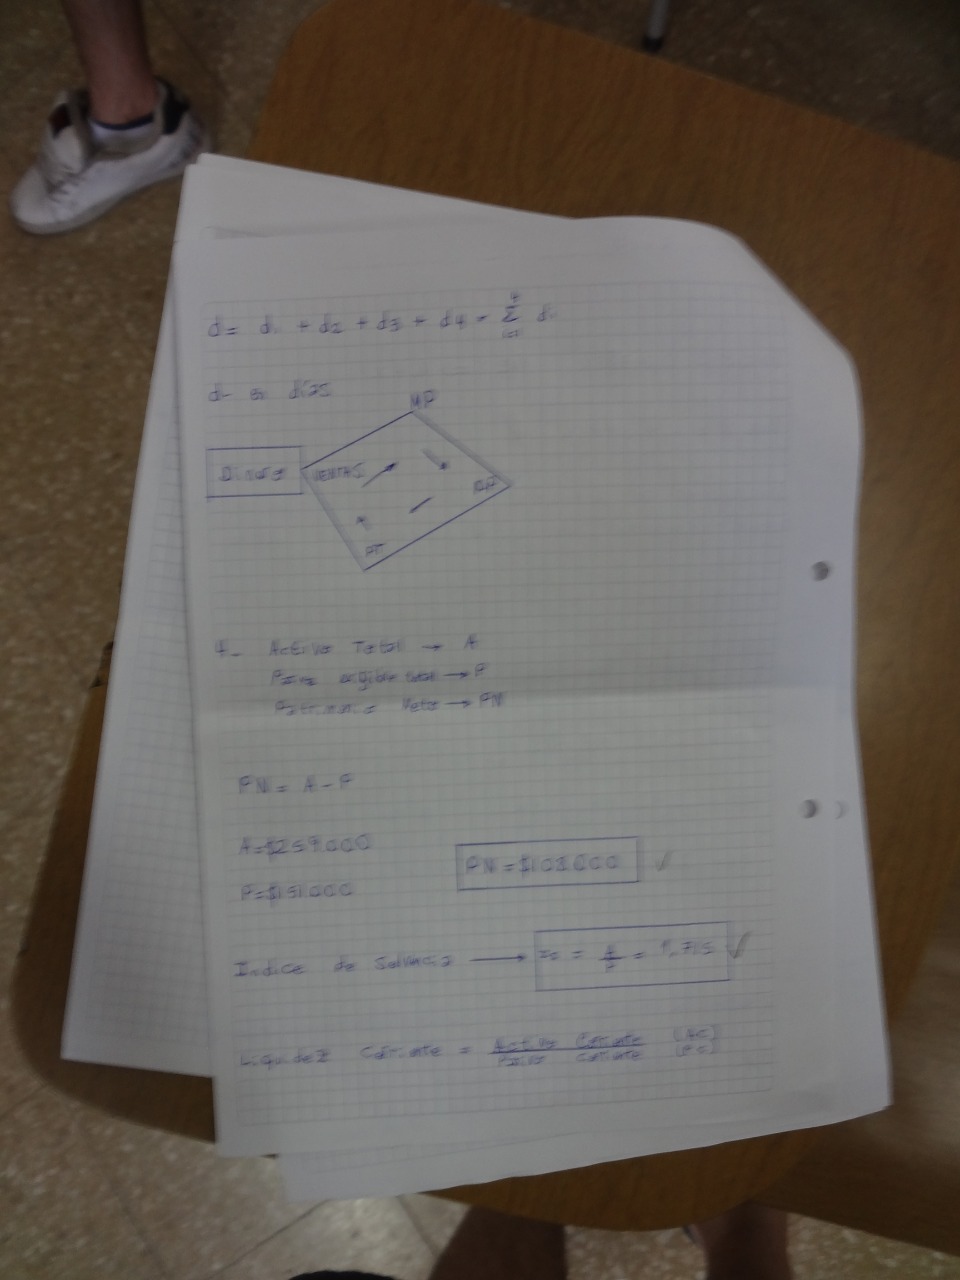 d = d1 + d2 + d3 + d4 = Σ di
4
i=1
d en días
MP
Dinero VENTAS
PT
4- Activo Total → A
Pasivo exigible total → P
Patrimonio Neto → PN
PN = A - P
A=$259.000
PN = $108.000 ✓
P=$151.000
Indice de Solvencia → Is = A/P = 1,715 ✓
Liquidez Corriente = Activo Corriente (AC)
Pasivo Corriente (PC)